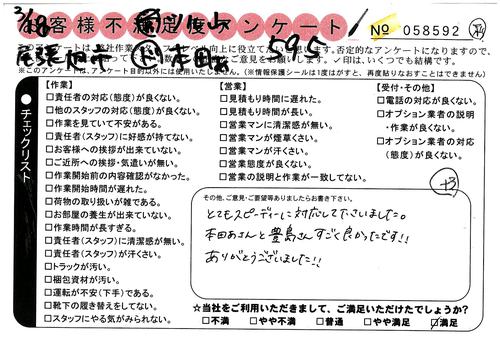 3/18
お客様不満足度アンケート
No 058592
595
このアンケートは
否定的なアンケートになりますので、
ご意見をお願いします。✓印は、いくつでも結構です。
※このアンケートは、アンケート目的以外には使用いたしません。(※情報保護シールは1度はがすと、再度貼りなおすことはできません)
チェックリスト
【作業】
□責任者の対応(態度)が良くない。
□他のスタッフの対応(態度)が良くない。
□作業を見ていて不安がある。
□責任者(スタッフ)に好感が持てない。
□お客様への挨拶が出来ていない。
□ご近所への挨拶・気遣いが無い。
□作業開始前の内容確認がなかった。
□作業開始時間が遅れた。
□荷物の取り扱いが雑である。
□お部屋の養生が出来ていない。
□作業時間が長すぎる。
□責任者(スタッフ)に清潔感が無い。
□責任者(スタッフ)が汗くさい。
□トラックが汚い。
□梱包資材が汚い。
□運転が不安(下手)である。
□靴下の履き替えをしてない。
□スタッフにやる気がみられない。
【営業】
□見積もり時間に遅れた。
□見積もり時間が長い。
□営業マンに清潔感が無い。
□営業マンが煙草くさい。
□営業マンが汗くさい。
□営業態度が良くない。
□営業の説明と作業が一致してない。
【受付・その他】
□電話の対応が良くない。
□オプション業者の説明
・作業が良くない。
□オプション業者の対応
(態度)が良くない。
+3
その他、ご意見・ご要望等ありましたらお書き下さい。
とてもスピーディーに対応して下さいました。
本田さんと豊島さんすごく良かったです!!
ありがとうございました!!
☆当社をご利用いただきまして、ご満足いただけたでしょうか?
□不満 □やや不満 □普通 □やや満足 ☑満足